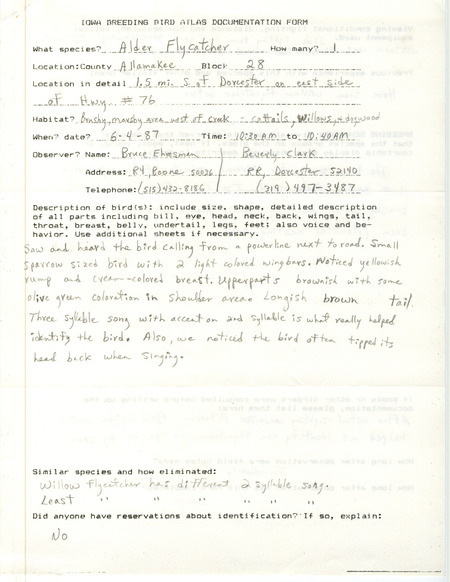 IOWA BREEDING BIRD ATLAS DOCUMENTATION FORM
What species? Alder Flycatcher How many? 1
Location: County Allamakee Block 28
Location in detail 1.5 mi. S. of Dorcester on east side
of Hwy. # 76
Habitat? Brushy, marshy area west of creek - cattails, Willows, & dogwood
When? date? 6-4-87 Time: 10:30 AM to 10:40 AM
Observer? Name: Bruce Ehresman Beverly Clark
Address: R4, Boone 50036 RR, Dorcester 52140
Telephone: (515) 432-8186 (319) 497-3487
Description of bird(s): include size, shape, detailed description
of all parts including bill, eye, head, neck, back, wings, tail,
throat, breast, belly, undertail, legs, feet; also voice and be-
havior. Use additional sheets if necessary.
Saw and heard the bird calling from a powerline next to road. Small
sparrow sized bird with 2 light colored wingbars. Noticed yellowish
rump and cream-colored breast. Upperparts brownish with some
olive green coloration in shoulder area. Longish brown tail.
Three syllable song with accent on 2nd syllable is what really helped
identify the bird. Also, we noticed the bird often tipped its
head back when singing.
Similar species and how eliminated:
Willow flycatcher has different 2 syllable song.
Least " " " " " "
Did anyone have reservations about identification? If so, explain:
No